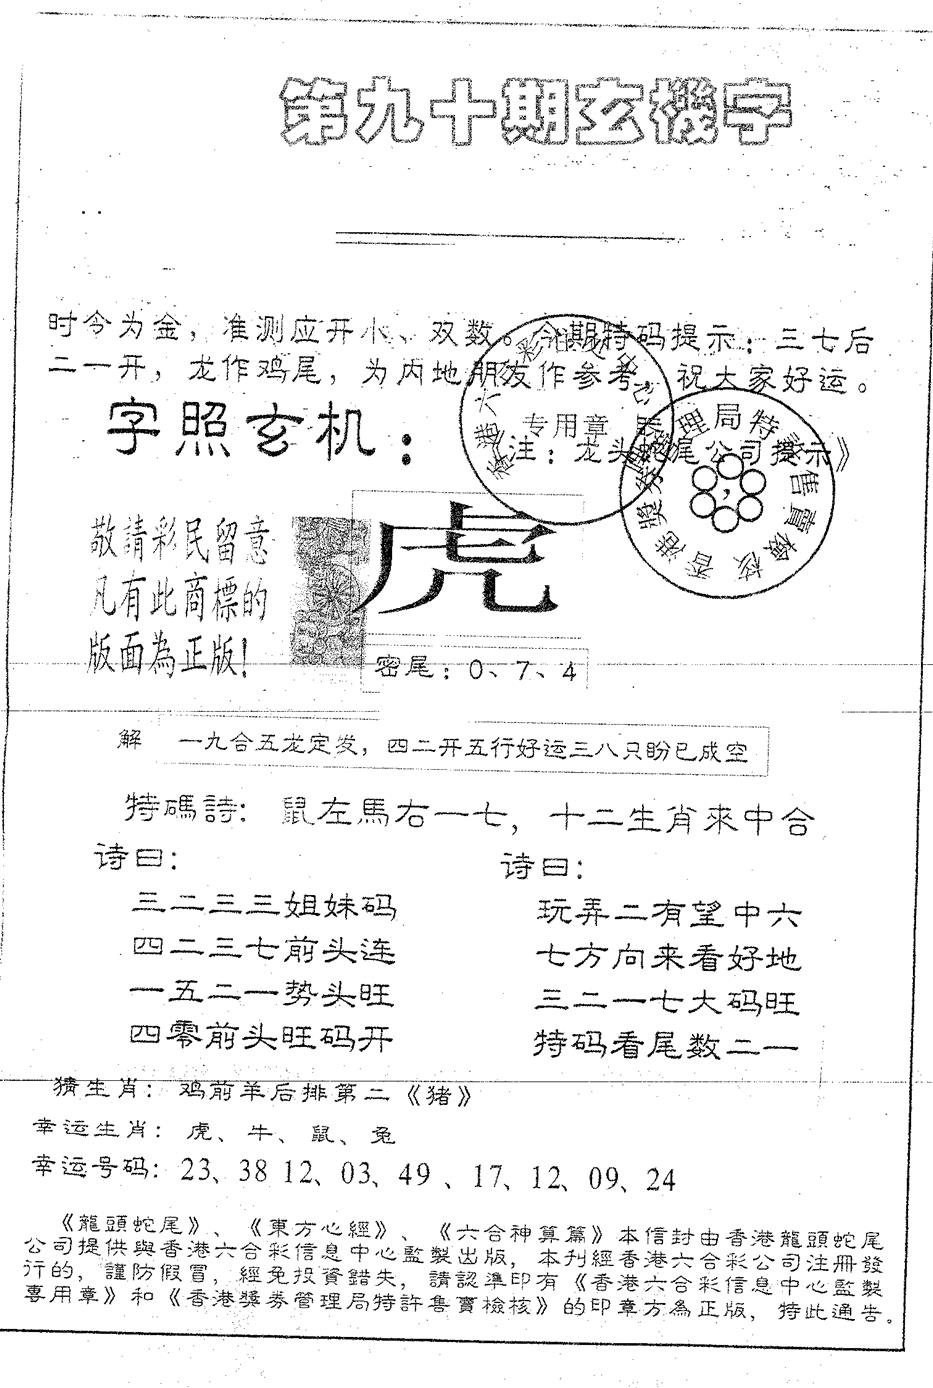 第九十期玄機字
时今为金，准测应开小、双数。今期特码提示：三七后
二一开，龙作鸡尾，为内地朋友作参考，祝大家好运。
字照玄机：
专用章
注：龙头蛇尾公司提示》
香港獎券管理局特許售賣檢核
敬請彩民留意
凡有此商標的
版面為正版！
虎
密尾：0、7、4
解 一九合五龙定发，四二开五行好运三八只盼已成空
特碼詩：鼠左馬右一七，十二生肖來中合
诗曰：
三二三三姐妹码
四二三七前头连
一五二一势头旺
四零前头旺码开
诗曰：
玩弄二有望中六
七方向来看好地
三二一七大码旺
特码看尾数二一
猜生肖：鸡前羊后排第二《猪》
幸运生肖：虎、牛、鼠、兔
幸运号码：23、38 12、03、49 、17、12、09、24
《龍頭蛇尾》、《東方心經》、《六合神算篇》本信封由香港龍頭蛇尾
公司提供與香港六合彩信息中心監製出版，本刊經香港六合彩公司注冊發
行的，謹防假冒，經免投資錯失，請認準印有《香港六合彩信息中心監製
專用章》和《香港獎券管理局特許售賣檢核》的印章方為正版，特此通告。